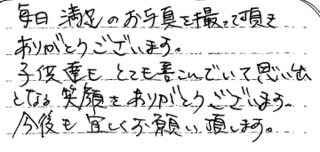 毎日 満足のお写真を撮って頂き
ありがとうございます。
子供達も とても喜こんでいて思い出
となる 笑顔をありがとうございます。
今後も 宜しくお願い頂します。